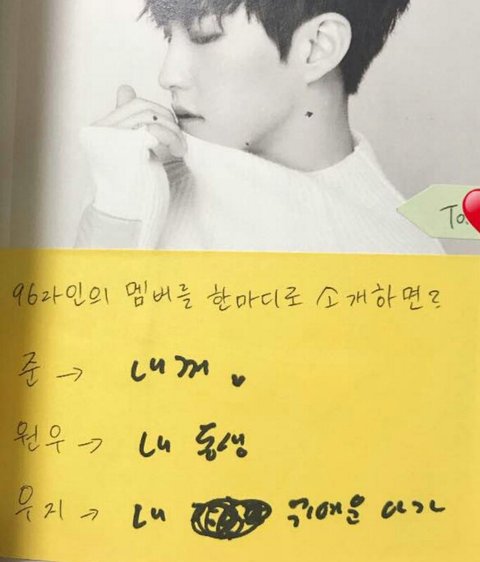 To.
96라인의 멤버를 한마디로 소개하면?
준 → 내꺼 ♥
원우 → 내 동생
우지 → 내 귀여운 아가